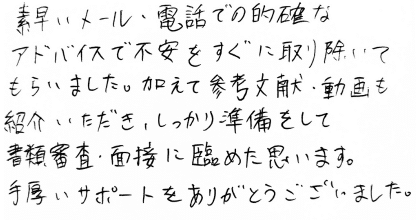 素早いメール・電話での的確な
アドバイスで不安をすぐに取り除いて
もらいました。加えて参考文献・動画も
紹介いただき、しっかり準備をして
書類審査・面接に臨めた思います。
手厚いサポートをありがとうございました。